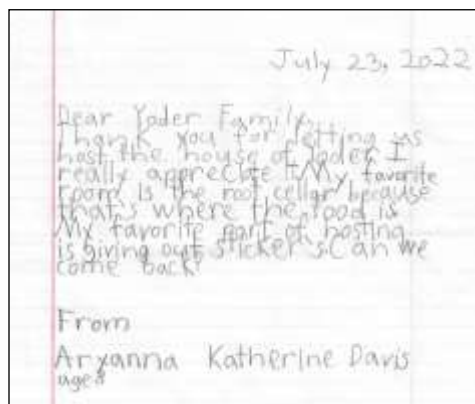 July 23, 2022
Dear Yoder Family,
Thank you for letting us
host the house of Yoder I
really apprecrate it. My favorite
room is the root cellar because
that's where the food is
My favorite part of hosting
is giving out stickers. Can we
come back?
From
Aryanna Katherine Davis
age 8